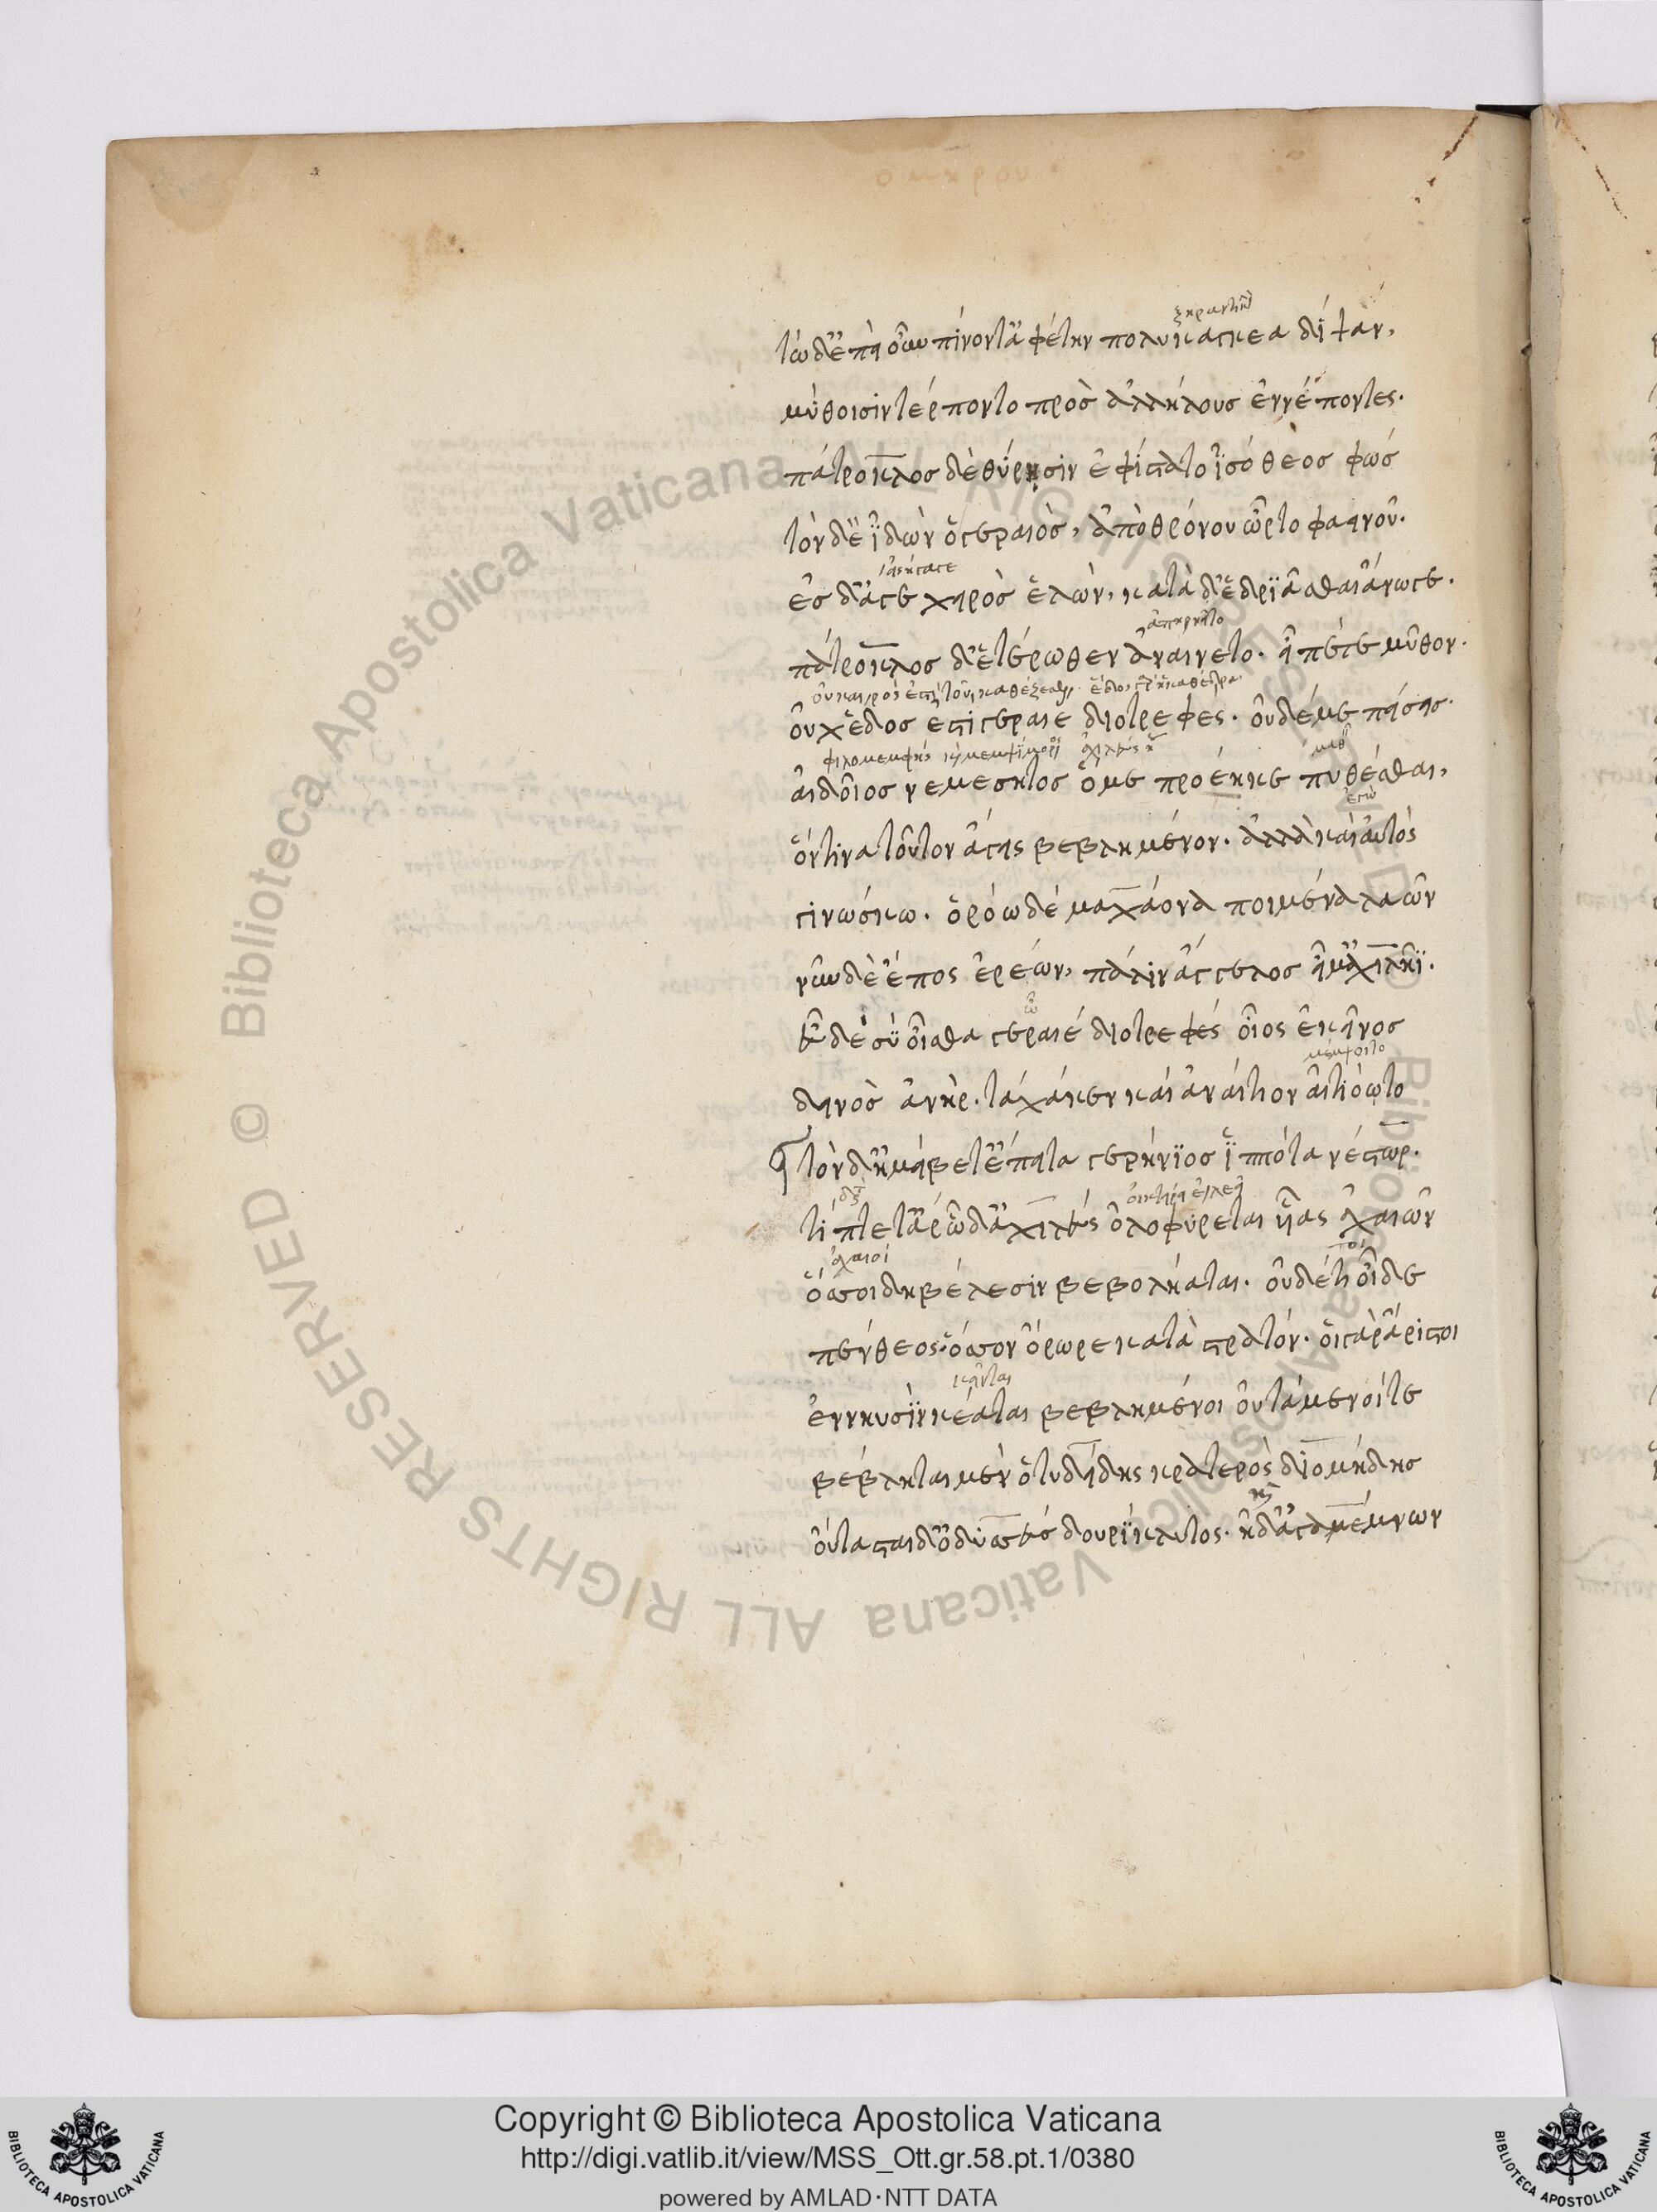 τὼ δ' ἐπεὶ οὖν πίνοντ' ἀφέτην πολυκαγκέα δίψαν,
μύθοισιν τέρποντο πρὸς ἀλλήλους ἐννέποντες.
πάτροκλος δὲ θύρησιν ἐφίστατο ἰσόθεος φώς
τὸν δὲ ἰδὼν ὁ γεραιὸς, ἀπὸ θρόνου ὦρτο φαεινοῦ.
ἐς δ' ἄγε χειρὸς ἑλὼν, κατὰ δ' ἑδριάασθαι ἄνωγε.
ἀπηρνεῖτο
πάτροκλος δ' ἑτέρωθεν ἀναίνετο. εἶπέ τε μῦθον.
οὐχ ἕδος ἐστὶ γεραιὲ διοτρεφές. οὐδέ με πείσεις.
αἰδοῖος νεμεσητὸς ὅ με προέηκε πυθέσθαι,
ἐγὼ
ὅντινα τοῦτον ἄγεις βεβλημένον. ἀλλὰ καὶ αὐτὸς
γινώσκω. ὁρόω δὲ μαχάονα ποιμένα λαῶν
νῦν δὲ ἔπος ἐρέων, πάλιν ἄγγελος εἶμ' ἀχιλῆϊ.
εὖ δὲ σὺ οἶσθα γεραιέ διοτρεφές οἷος ἐκεῖνος
μέμψοιτο
δεινὸς ἀνήρ. τάχά κεν καὶ ἀναίτιον αἰτιόωτο
τὸν δ' ἠμείβετ' ἔπειτα γερήνιος ἱππότα νέστωρ.
τίπτε τ' ἄρ' ὧδ' ἀχιλεύς ὀλοφύρεται υἷας ἀχαιῶν
ἀχαιοί
ὅσσοι δὴ βέλεσιν βεβολήαται. οὐδέ τι οἶδε
πένθεος. ὅσσον ὄρωρε κατὰ στρατόν. οἱ γὰρ ἄριστοι
κεῖνται
ἐν νηυσὶν κέαται βεβλημένοι οὐτάμενοί τε
βέβληται μὲν ὁ τυδείδης κρατερὸς διομήδης
οὔτασται δ' ὀδυσσεύς δουρὶ κλυτος. ἠδ' ἀγαμέμνων
Copyright © Biblioteca Apostolica Vaticana
http://digi.vatlib.it/view/MSS_Ott.gr.58.pt.1/0380
powered by AMLAD·NTT DATA